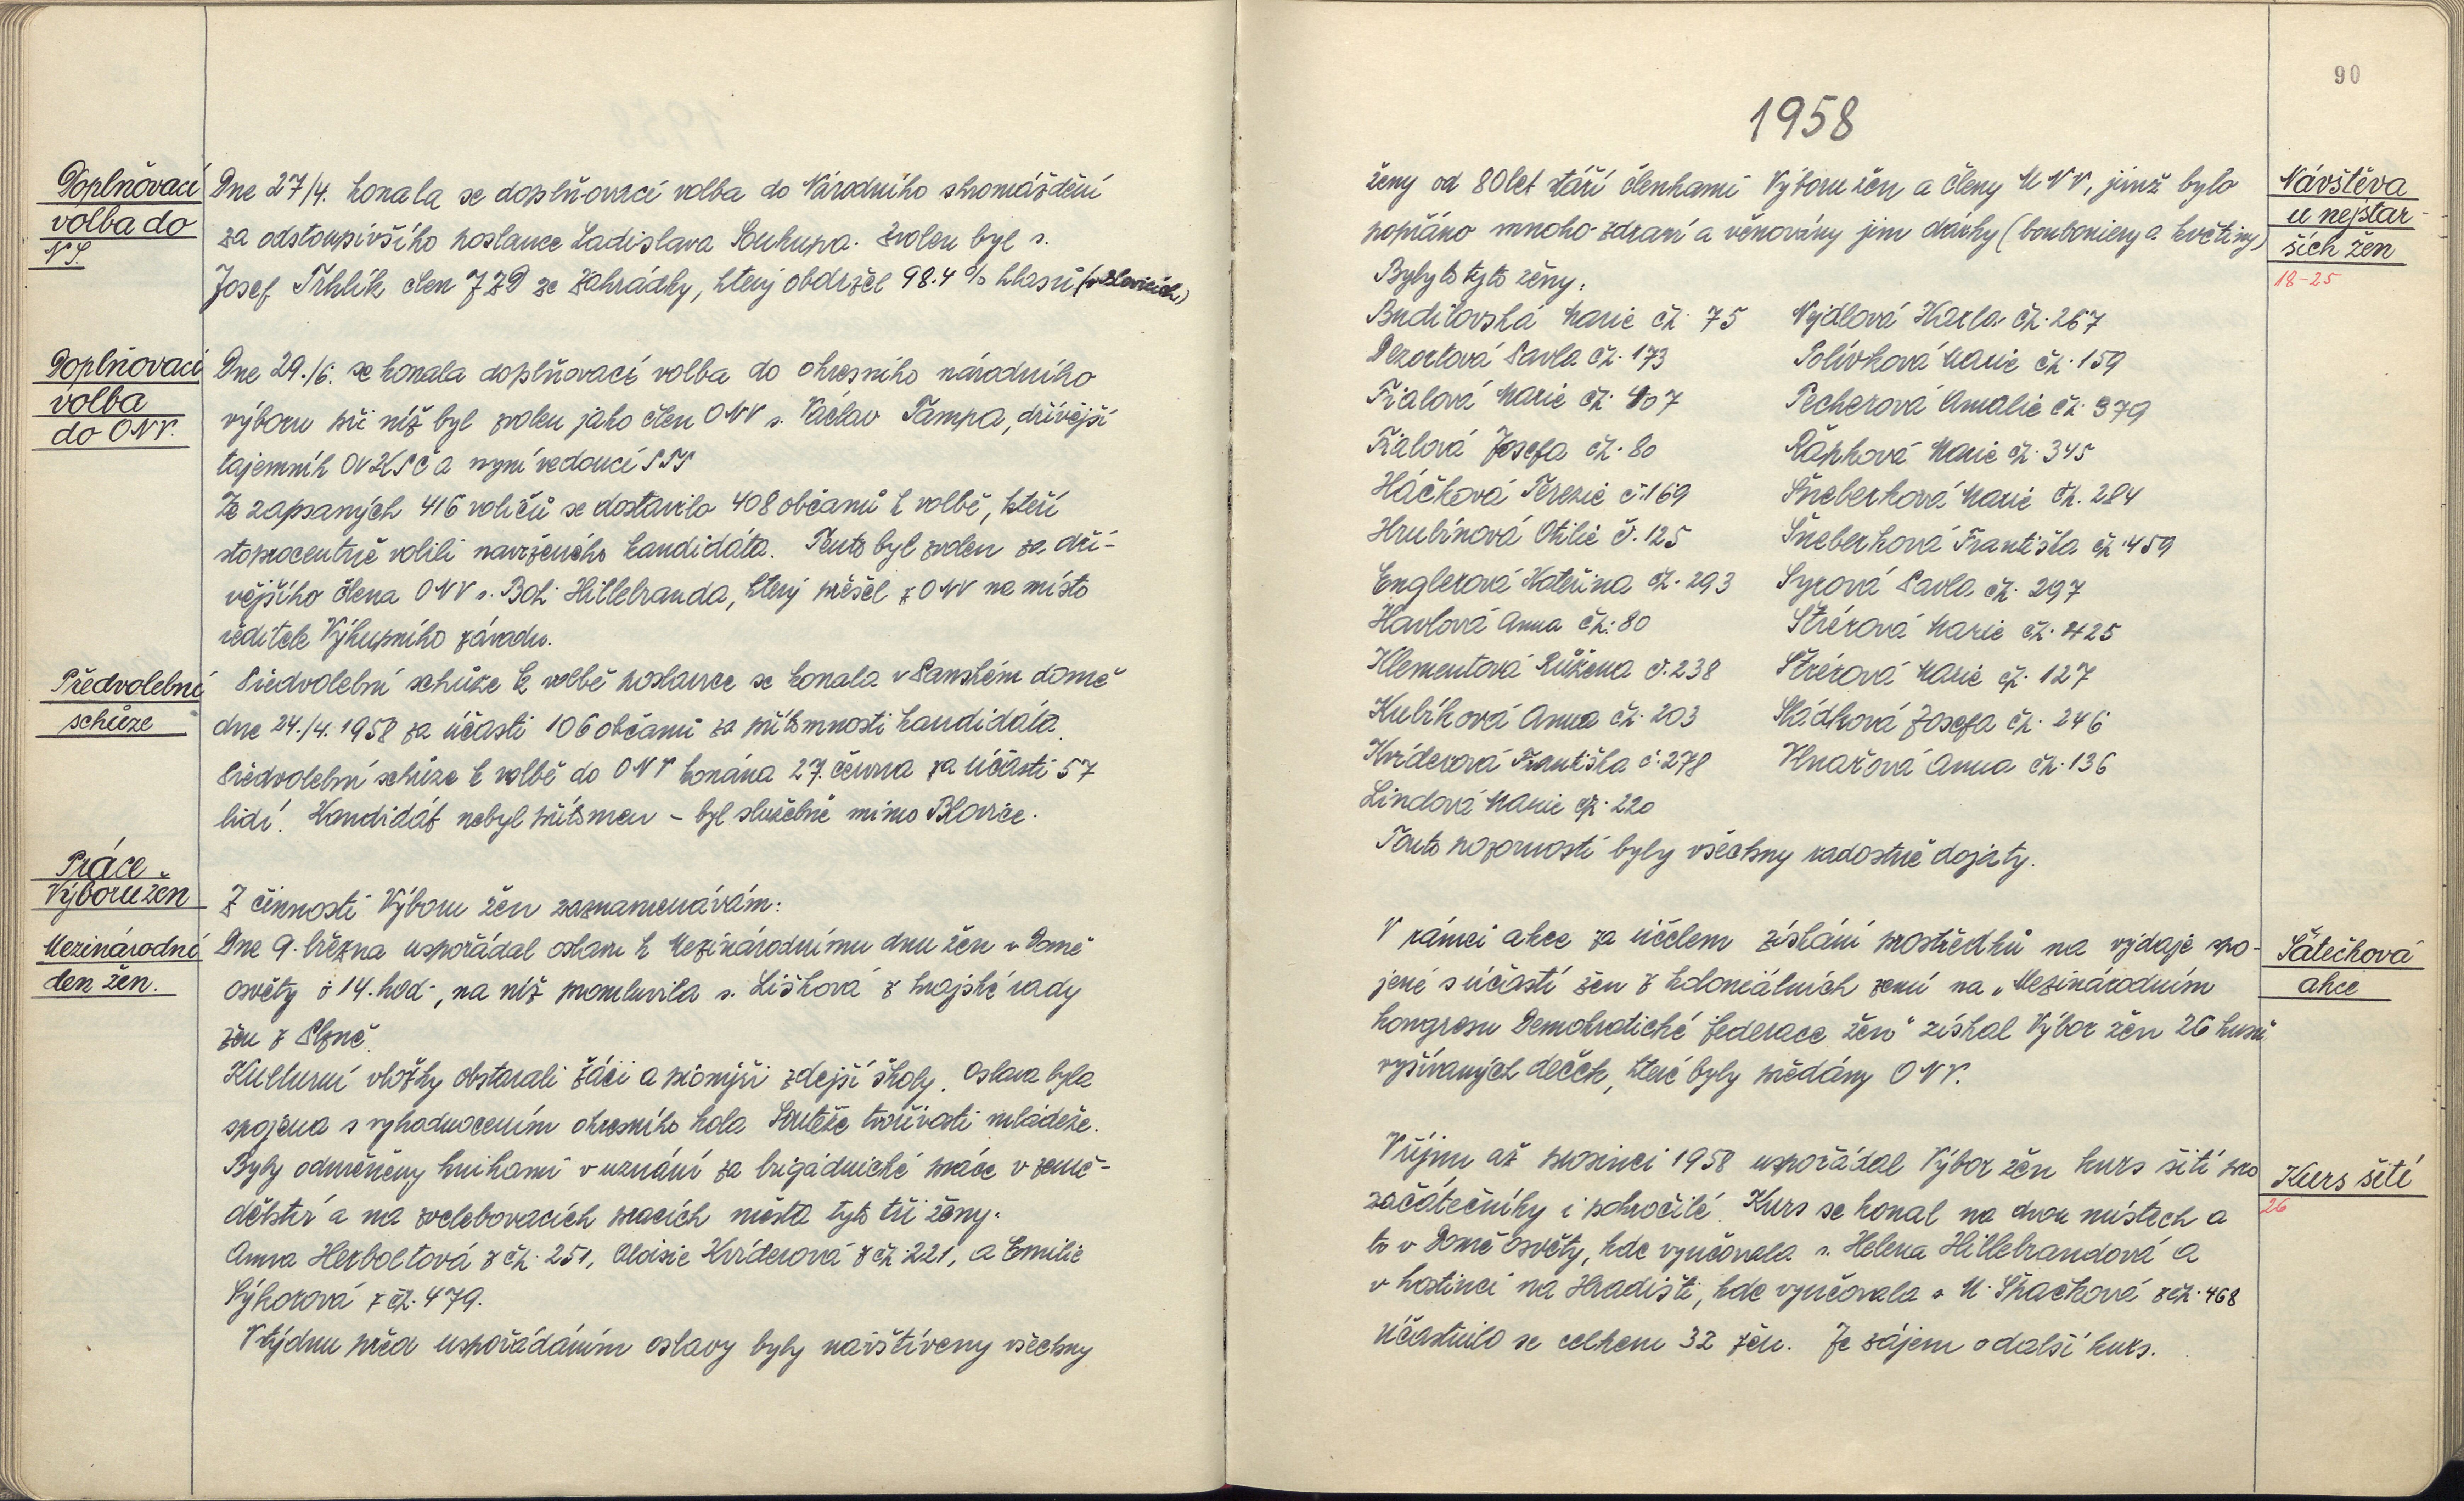 Doplňovací
volba do
N.S.
Dne 27/4. konala se doplňovací volba do Národního shromáždění
za odstoupivšího poslance Ladislava Soukupa. Zvolen byl s.
Josef Trhlík člen JZD ze Zahrádky, který obdržel 98.4 % hlasů (v Blovicích)
Doplňovací
volba
do ONV.
Dne 29./6. se konala doplňovací volba do okresního národního
výboru při níž byl zvolen jako člen ONV s. Václav Tampa, dřívější
tajemník OVKSČ a nyní vedoucí STS
Ze zapsaných 416 voličů se dostavilo 408 občanů k volbě, kteří
stoprocentně volili navrženého kandidáta. Tento byl zvolen za dří-
vějšího člena ONV s. Boh. Hillebranda, který přešel z ONV na místo
ředitele Výkupního závodu.
Předvolební
schůze
Předvolební schůze k volbě poslance se konala v Panském domě
dne 24./4. 1958 za účasti 106 občanů za přítomnosti kandidáta.
Předvolební schůze k volbě do ONV konána 27. června za účasti 57
lidí. Kandidát nebyl přítomen - byl služebně mimo Blovice.
Práce
Výboru žen
Z činnosti Výboru žen zaznamenávám:
Mezinárodní
den žen.
Dne 9. března uspořádal oslavu k Mezinárodnímu dnu žen v Domě
osvěty o 14. hod., na níž promluvila s. Lišková z krajské rady
žen z Plzně.
Kulturní vložky obstarali žáci a pionýři zdejší školy. Oslava byla
spojena s vyhodnocením okresního kola Soutěže tvořivosti mládeže.
Byly odměněny knihami v uznání za brigádnické práce v země-
dělství a na zvelebovacích pracích města tyto tři ženy.
Anna Herboltová z čp. 251, Aloisie Kvíderová z čp. 221, a Emilie
Sýkorová z čp. 479.
V týdnu před uspořádáním oslavy byly navštíveny všechny
90
1958
Návštěva
u nejstar-
ších žen
18-25
ženy od 80 let stáří členkami Výboru žen a členy MNV, jimž bylo
popřáno mnoho zdraví a věnovány jim dárky (bonboniery a květiny)
Byly to tyto ženy:
Budilovská Marie čp. 75 Vydlová Karla čp. 267
Dezortová Pavla čp. 173 Polívková Marie čp. 159
Fialová Marie čp. 407 Pecherová Amalie čp. 379
Fialová Josefa čp. 80 Řápková Marie čp. 345
Háčková Terezie č. 169 Šneberková Marie čp. 284
Hrubínová Otilie č. 125 Šneberková Františka čp. 459
Englerová Kateřina čp. 293 Syrová Pavla čp. 297
Havlová Anna čp. 80 Štrérová Marie čp. 425
Klementová Růžena č. 238 Štrérová Marie čp. 127
Kubíková Anna čp. 203 Sládková Josefa čp. 246
Kvíderová Františka č. 278 Vlnařová Anna čp. 136
Lindová Marie čp. 220
Touto pozorností byly všechny radostně dojaty.
Šátečková
akce
V rámci akce za účelem získání prostředků na výdaje spo-
jené s účastí žen z koloniálních zemí na „Mezinárodním
kongresu Demokratické federace žen" získal Výbor žen 26 kusů
vyšívaných deček, které byly předány ONV.
Kurs šití
26
V říjnu až prosinci 1958 uspořádal Výbor žen kurs šití pro
začátečníky i pokročilé. Kurs se konal na dvou místech a
to v Domě osvěty, kde vyučovala s. Helena Hillebrandová a
v hostinci na Hradišti, kde vyučovala s. M. Špačková z čp. 468
účastnilo se celkem 32 žen. Je zájem o další kurs.